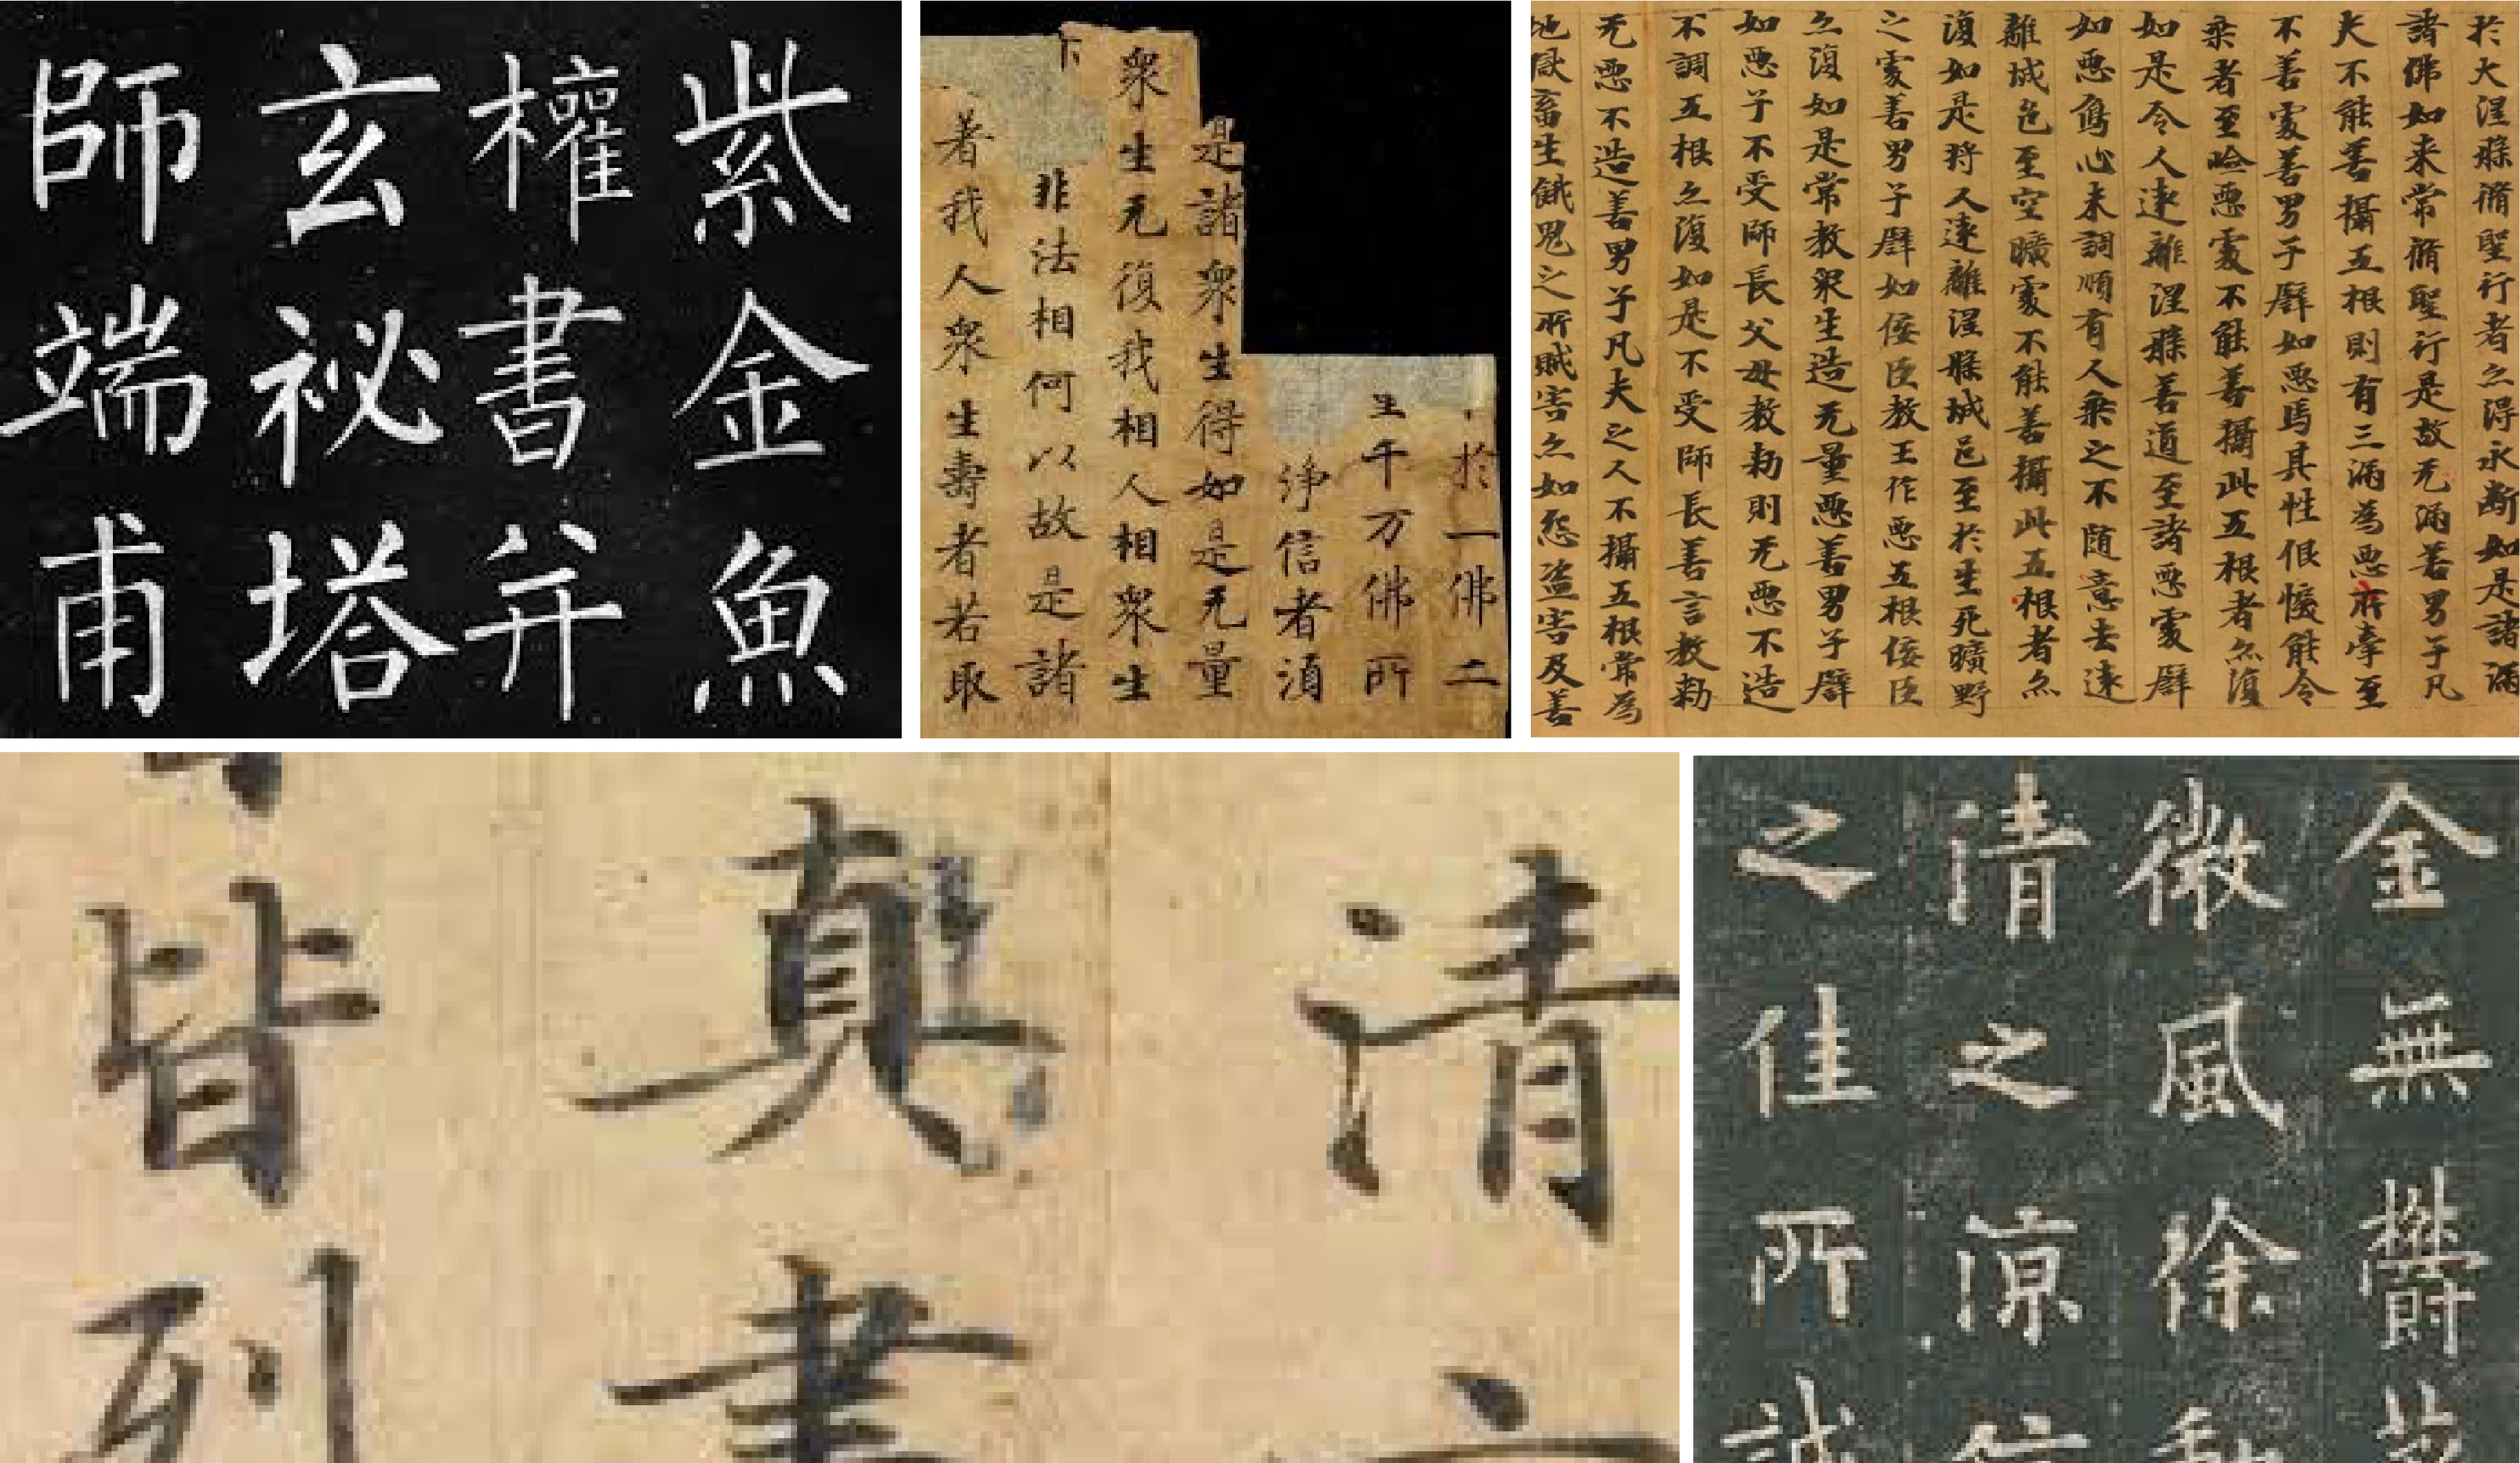 紫金魚
權書并
玄祕塔
師端甫
於一佛二
千万佛所
淨信者須
是諸衆生得如是无量
衆生无復我相人相衆生
非法相何以故是諸
著我人衆生壽者若取
於大涅槃脩聖行者亦得永斷如是諸漏
諸佛如来常脩聖行是故无漏善男子凡
夫不能善攝五根則有三漏為惡所牽至
不善處善男子譬如惡馬其性佷悷能令
乘者至嶮惡處不能善攝此五根者亦復
如是令人遠離涅槃善道至諸惡處譬
如惡象心未調順有人乘之不隨意去遠
離城邑至空曠處不能善攝此五根者亦
復如是將人遠離涅槃城邑至於生死曠野
之處善男子譬如佞臣教王作惡五根佞臣
亦復如是常教衆生造无量惡善男子譬
如惡子不受師長父母教勑則无惡不造
不調五根亦復如是不受師長善言教勑
无惡不造善男子凡夫之人不攝五根常為
地獄畜生餓鬼之所賊害亦如怨盜害及善
清
真書
皆列
金無欝
微風徐
清之涼
之佳所誠